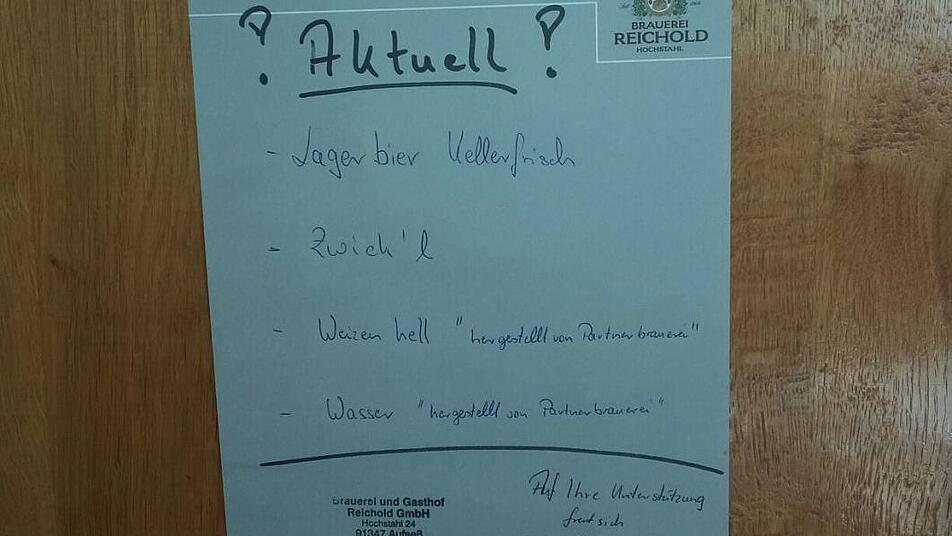 BRAUEREI
REICHOLD
HOCHSTAHL
! Aktuell !
- Lagerbier Kellerfrisch
- Zwick'l
- Weizen hell "hergestellt von Partnerbrauerei"
- Wasser "hergestellt von Partnerbrauerei"
Auf Ihre Unterstützung
freut sich
Brauerei und Gasthof
Reichold GmbH
Hochstahl 24
91347 Aufseß